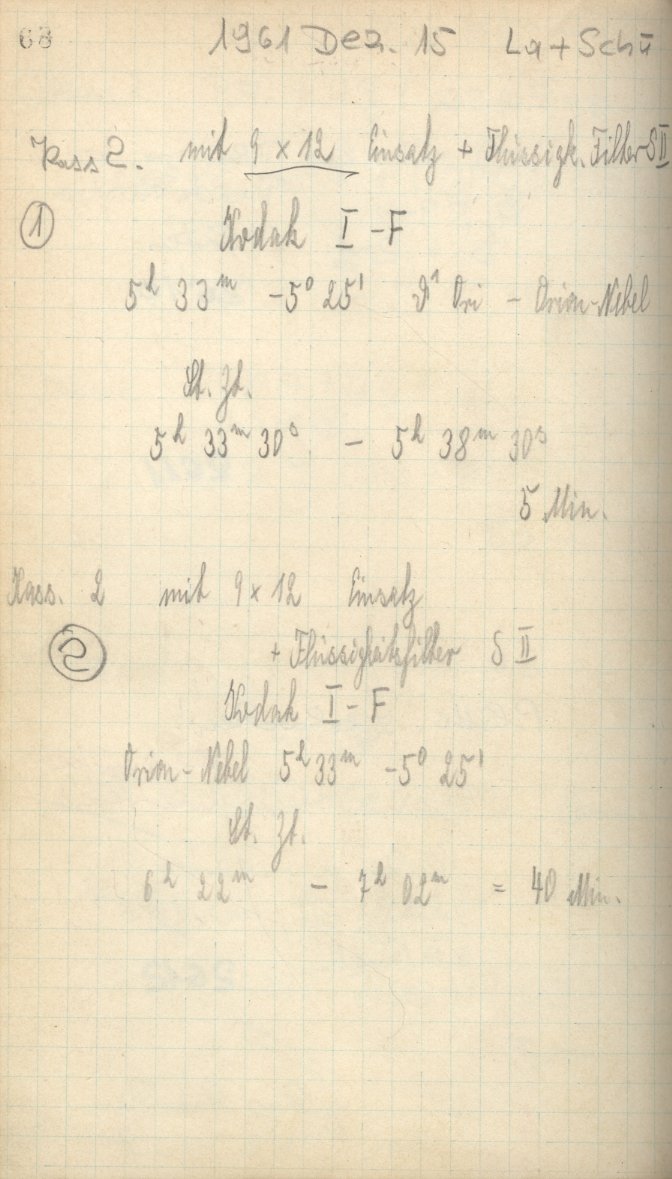 68 1961 Dez. 15 La + Schü
Kass 2. mit 9 × 12 Einsatz + Flüssigk. Filter S II
① Kodak I - F
5h 33m -5° 25' ϑ¹ Ori - Orion-Nebel
St. Zt.
5h 33m 30s - 5h 38m 30s
5 Min.
Kass. 2 mit 9 × 12 Einsatz
② + Flüssigkeitsfilter S II
Kodak I - F
Orion-Nebel 5h 33m -5° 25'
St. Zt.
6h 22m - 7h 02m = 40 Min.